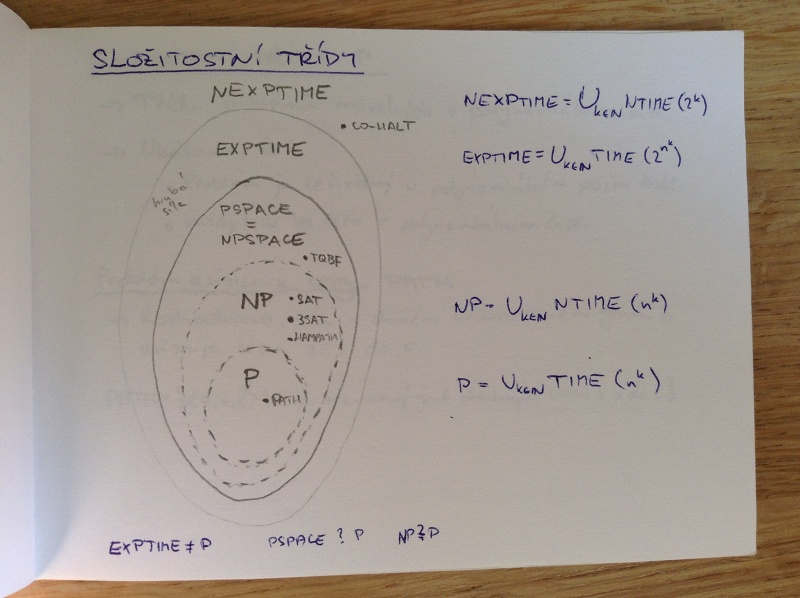 SLOŽITOSTNÍ TŘÍDY
NEXPTIME
• CO-HALT
EXPTIME
hrubá
síla
PSPACE
=
NPSPACE
• TQBF
NP
• SAT
• 3SAT
• HAMPATH
P
• PATH
NEXPTIME = ∪k∈N NTIME (2^k)
EXPTIME = ∪k∈N TIME (2^n^k)
NP = ∪k∈N NTIME (n^k)
P = ∪k∈N TIME (n^k)
EXPTIME ≠ P
PSPACE ? P